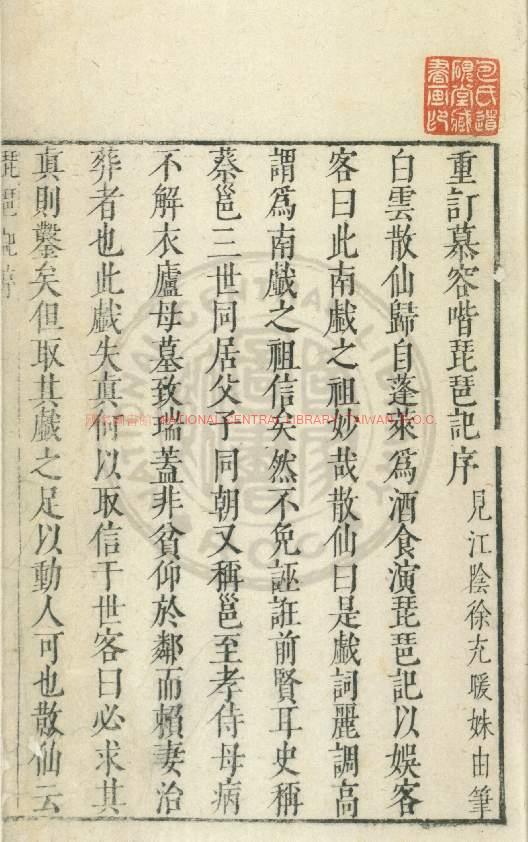 重訂慕容喈琵琶記序 見江陰徐充暖姝由筆
白雲散仙歸自蓬萊爲酒食演琵琶記以娛客
客曰此南戲之祖妙哉散仙曰是戲詞麗調高
謂爲南戲之祖信矣然不免誣誑前賢耳史稱
蔡邕三世同居父子同朝又稱邕至孝侍母病
不解衣廬母墓致瑞蓋非貧仰於鄰而賴妻治
葬者也此戲失真何以取信于世客曰必求其
真則鑿矣但取其戲之足以動人可也散仙云
琵琶記序
包氏遺
硯堂藏
書画印
國家圖書館 NATIONAL CENTRAL LIBRARY, TAIWAN R.O.C.